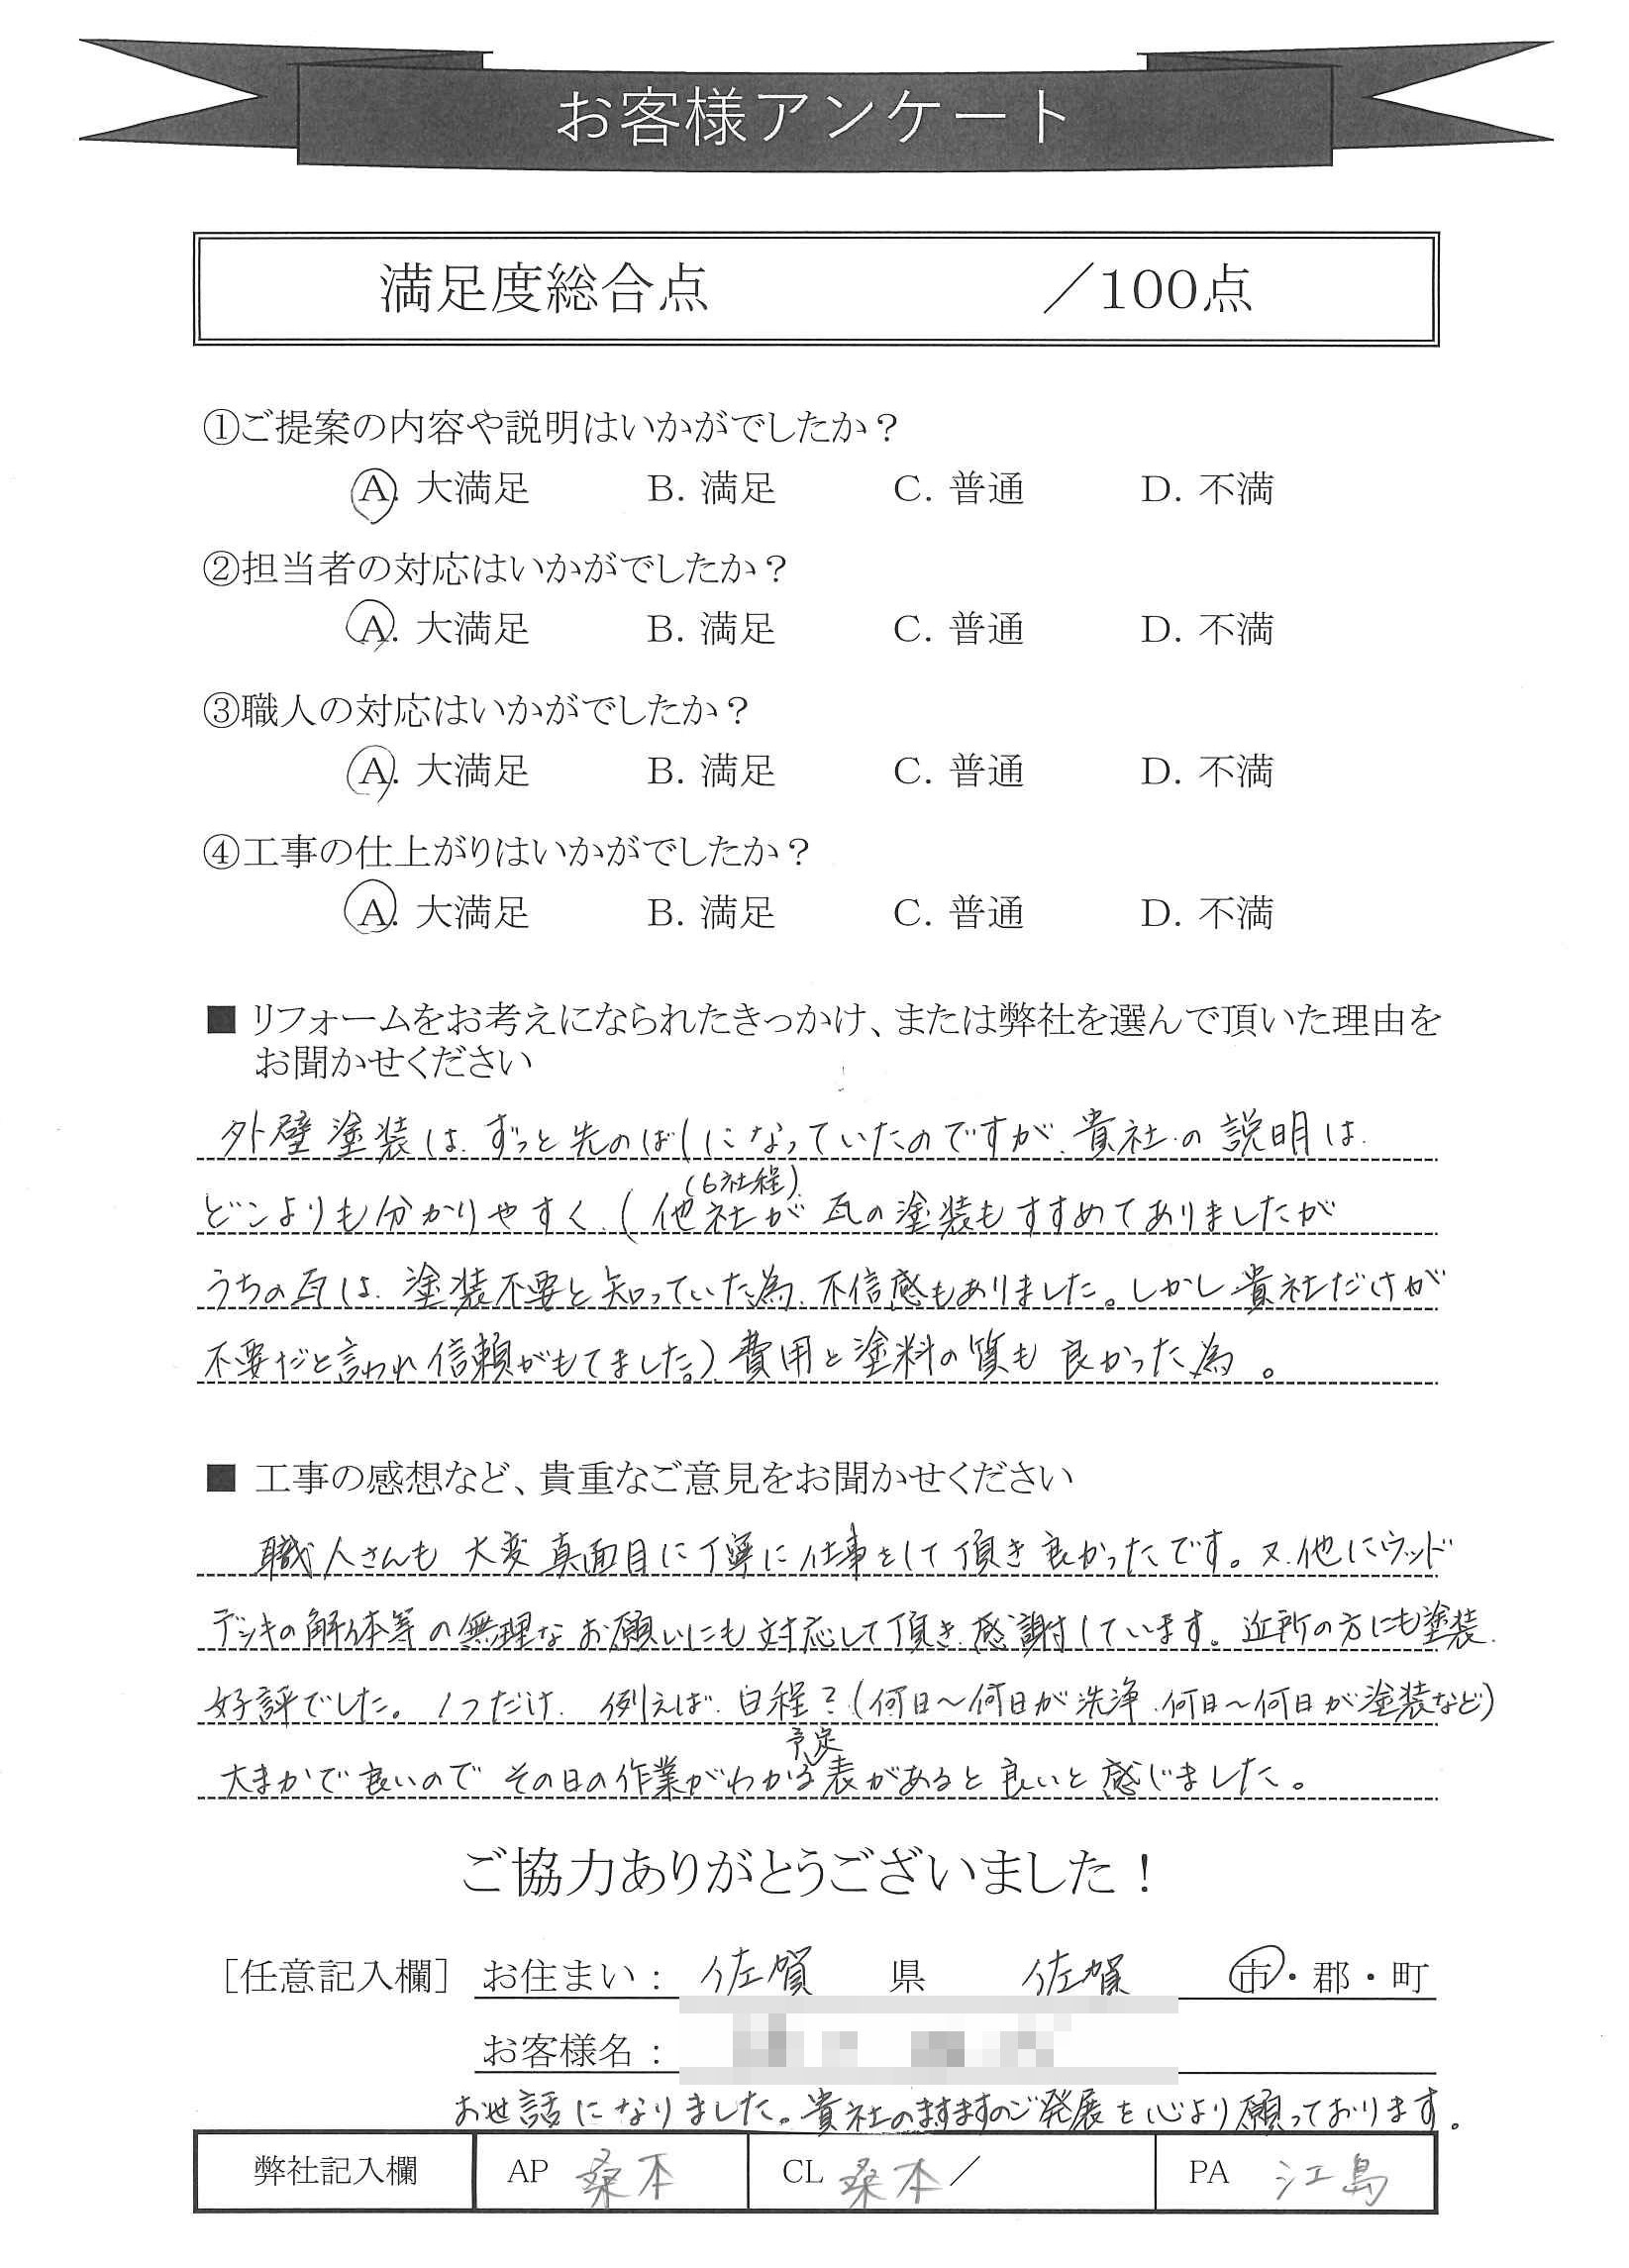 お客様アンケート
満足度総合点 ／100点
①ご提案の内容や説明はいかがでしたか？
A. 大満足 B. 満足 C. 普通 D. 不満
②担当者の対応はいかがでしたか？
A. 大満足 B. 満足 C. 普通 D. 不満
③職人の対応はいかがでしたか？
A. 大満足 B. 満足 C. 普通 D. 不満
④工事の仕上がりはいかがでしたか？
A. 大満足 B. 満足 C. 普通 D. 不満
■ リフォームをお考えになられたきっかけ、または弊社を選んで頂いた理由を
お聞かせください
外壁塗装は、ずっと先のばしになっていたのですが、貴社の説明は、
(6社程)
どこよりも分かりやすく、(他社が 瓦の塗装もすすめてありましたが
うちの瓦は、塗装不要と知っていた為、不信感もありました。しかし貴社だけが
不要だと言われ信頼がもてました。)費用と塗料の質も良かった為。
■ 工事の感想など、貴重なご意見をお聞かせください
職人さんも大変真面目に丁寧に仕事をして頂き良かったです。又、他にウッド
デッキの解体等の無理なお願いにも対応して頂き、感謝しています。近所の方にも塗装、
好評でした。1つだけ、例えば、日程？(何日～何日が洗浄、何日～何日が塗装など)
予定
大まかで良いのでその日の作業がわかる表があると良いと感じました。
ご協力ありがとうございました！
［任意記入欄］ お住まい： 佐賀 県 佐賀 市・郡・町
お客様名：
お世話になりました。貴社のますますのご発展を心より願っております。
弊社記入欄 AP 桑本 CL 桑本／ PA 江島